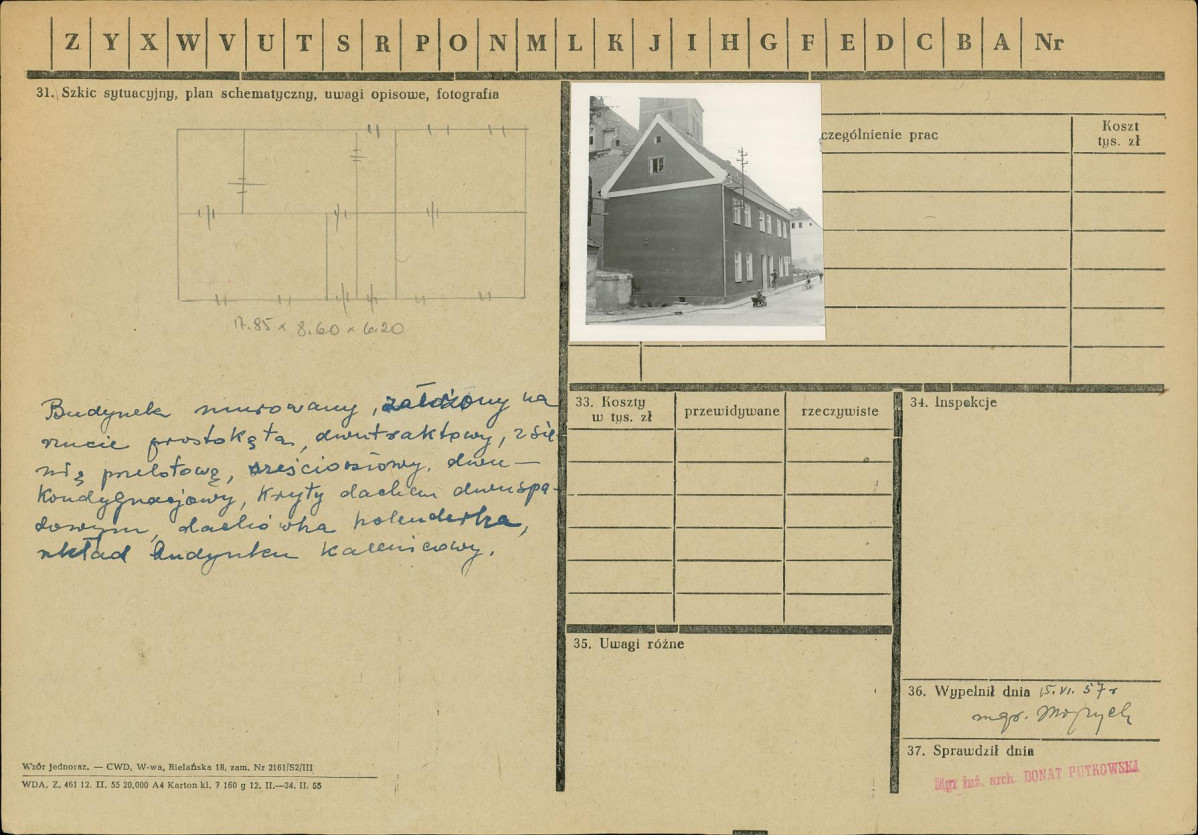 Z Y X W V U T S R P O N M L K J I H G F E D C B A Nr
31. Szkic sytuacyjny, plan schematyczny, uwagi opisowe, fotografia
17.85 x 8.60 x 6.20
Budynek murowany, założony na
rzucie prostokąta, dwutraktowy, z sie-
nią przelotową, sześcioosiowy, dwu-
kondygnacjowy, kryty dachem dwuspa-
dowym, dachówka holenderka,
układ budynku kalenicowy.
Wzór jednoraz. — CWD, W-wa, Bielańska 18, zam. Nr 2161/S2/III
WDA. Z. 461 12. II. 55 20,000 A4 Karton kl. 7 160 g 12. II.—24. II. 55
czególnienie prac
Koszt
tys. zł
33. Koszty
w tys. zł
przewidywane
rzeczywiste
34. Inspekcje
35. Uwagi różne
36. Wypełnił dnia 15.VI.57 r
mgr.
37. Sprawdził dnia
Mgr inż. arch. DONAT PUTKOWSKI